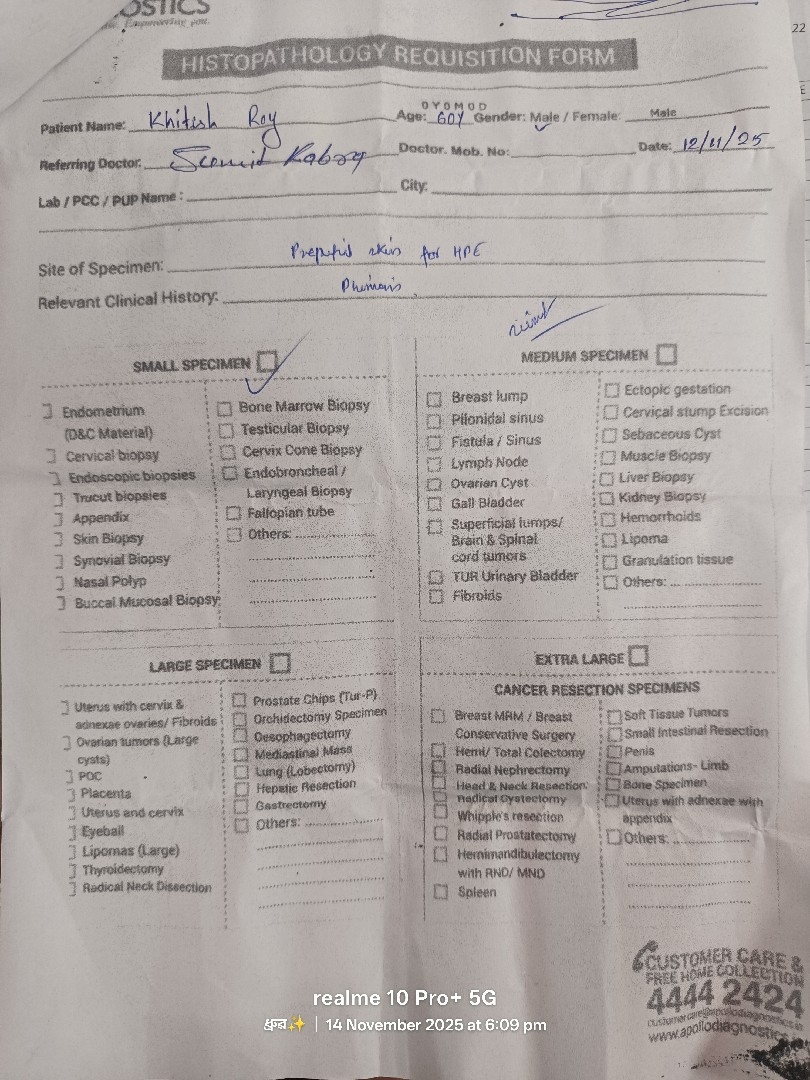 OSTICS
Empowering you.
22
HISTOPATHOLOGY REQUISITION FORM
Patient Name: Khitish Roy
DYOMOD
Age: 60Y Gender: Male / Female: Male
Referring Doctor:
Doctor. Mob. No:
Date: 12/11/25
Lab / PCC / PUP Name :
City:
Site of Specimen: skin for HPE
Relevant Clinical History:
SMALL SPECIMEN
Endometrium
(D&C Material)
Cervical biopsy
Endoscopic biopsies
Trucut biopsies
Appendix
Skin Biopsy
Synovial Biopsy
Nasal Polyp
Buccal Mucosal Biopsy
Bone Marrow Biopsy
Testicular Biopsy
Cervix Cone Biopsy
Endobroncheal /
Laryngeal Biopsy
Fallopian tube
Others:
MEDIUM SPECIMEN
Breast lump
Pilonidal sinus
Fistula / Sinus
Lymph Node
Ovarian Cyst
Gall Bladder
Superficial lumps/
Brain & Spinal
cord tumors
TUR Urinary Bladder
Fibroids
Ectopic gestation
Cervical stump Excision
Sebaceous Cyst
Muscle Biopsy
Liver Biopsy
Kidney Biopsy
Hemorrhoids
Lipoma
Granulation tissue
Others:
LARGE SPECIMEN
Uterus with cervix &
adnexae ovaries/ Fibroids
Ovarian tumors (Large
cysts)
POC
Placenta
Uterus and cervix
Eyeball
Lipomas (Large)
Thyroidectomy
Radical Neck Dissection
Prostate Chips (Tur-P)
Orchidectomy Specimen
Oesophagectomy
Mediastinal Mass
Lung (Lobectomy)
Hepatic Resection
Gastrectomy
Others:
EXTRA LARGE
CANCER RESECTION SPECIMENS
Breast MRM / Breast
Conservative Surgery
Hemi/ Total Colectomy
Radial Nephrectomy
Head & Neck Resection
Radical Cystectomy
Whipple's resection
Radial Prostatectomy
Hemimandibulectomy
with RND/ MND
Spleen
Soft Tissue Tumors
Small Intestinal Resection
Penis
Amputations- Limb
Bone Specimen
Uterus with adnexae with
appendix
Others:
CUSTOMER CARE &
FREE HOME COLLECTION
4444 2424
customercare@apollodiagnostics.in
www.apollodiagnostics
realme 10 Pro+ 5G
ধ্রুব✨ | 14 November 2025 at 6:09 pm